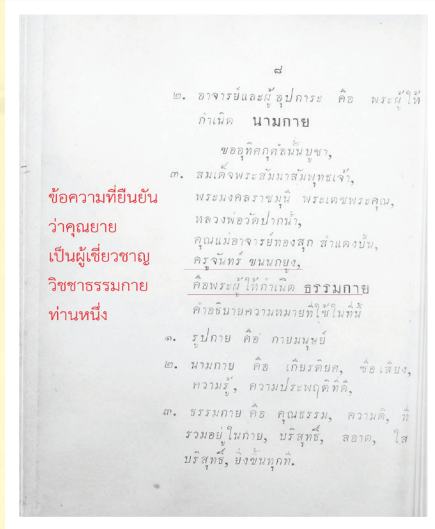 ๘
๒. อาจารย์และผู้อุปการะ คือ พระผู้ให้
กำเนิด นามกาย
ขออุทิศกุศลนั้นบูชา,
๓. สมเด็จพระสัมมาสัมพุทธเจ้า,
พระมงคลราชมุนี พระเดชพระคุณ,
หลวงพ่อวัดปากน้ำ,
คุณแม่อาจารย์ทองสุก สำแดงปั้น,
ครูจันทร์ ขนนกยูง,
คือพระผู้ให้กำเนิด ธรรมกาย
คำอธิบายความหมายที่ใช้ในที่นี้
๑. รูปกาย คือ กายมนุษย์
๒. นามกาย คือ เกียรติยศ, ชื่อเสียง,
ความรู้, ความประพฤติที่ดี,
๓. ธรรมกาย คือ คุณธรรม, ความดี, ที่
รวมอยู่ในกาย, บริสุทธิ์, สอาด, ใส
บริสุทธิ์, ยิ่งขึ้นทุกที.
ข้อความที่ยืนยัน
ว่าคุณยาย
เป็นผู้เชี่ยวชาญ
วิชชาธรรมกาย
ท่านหนึ่ง